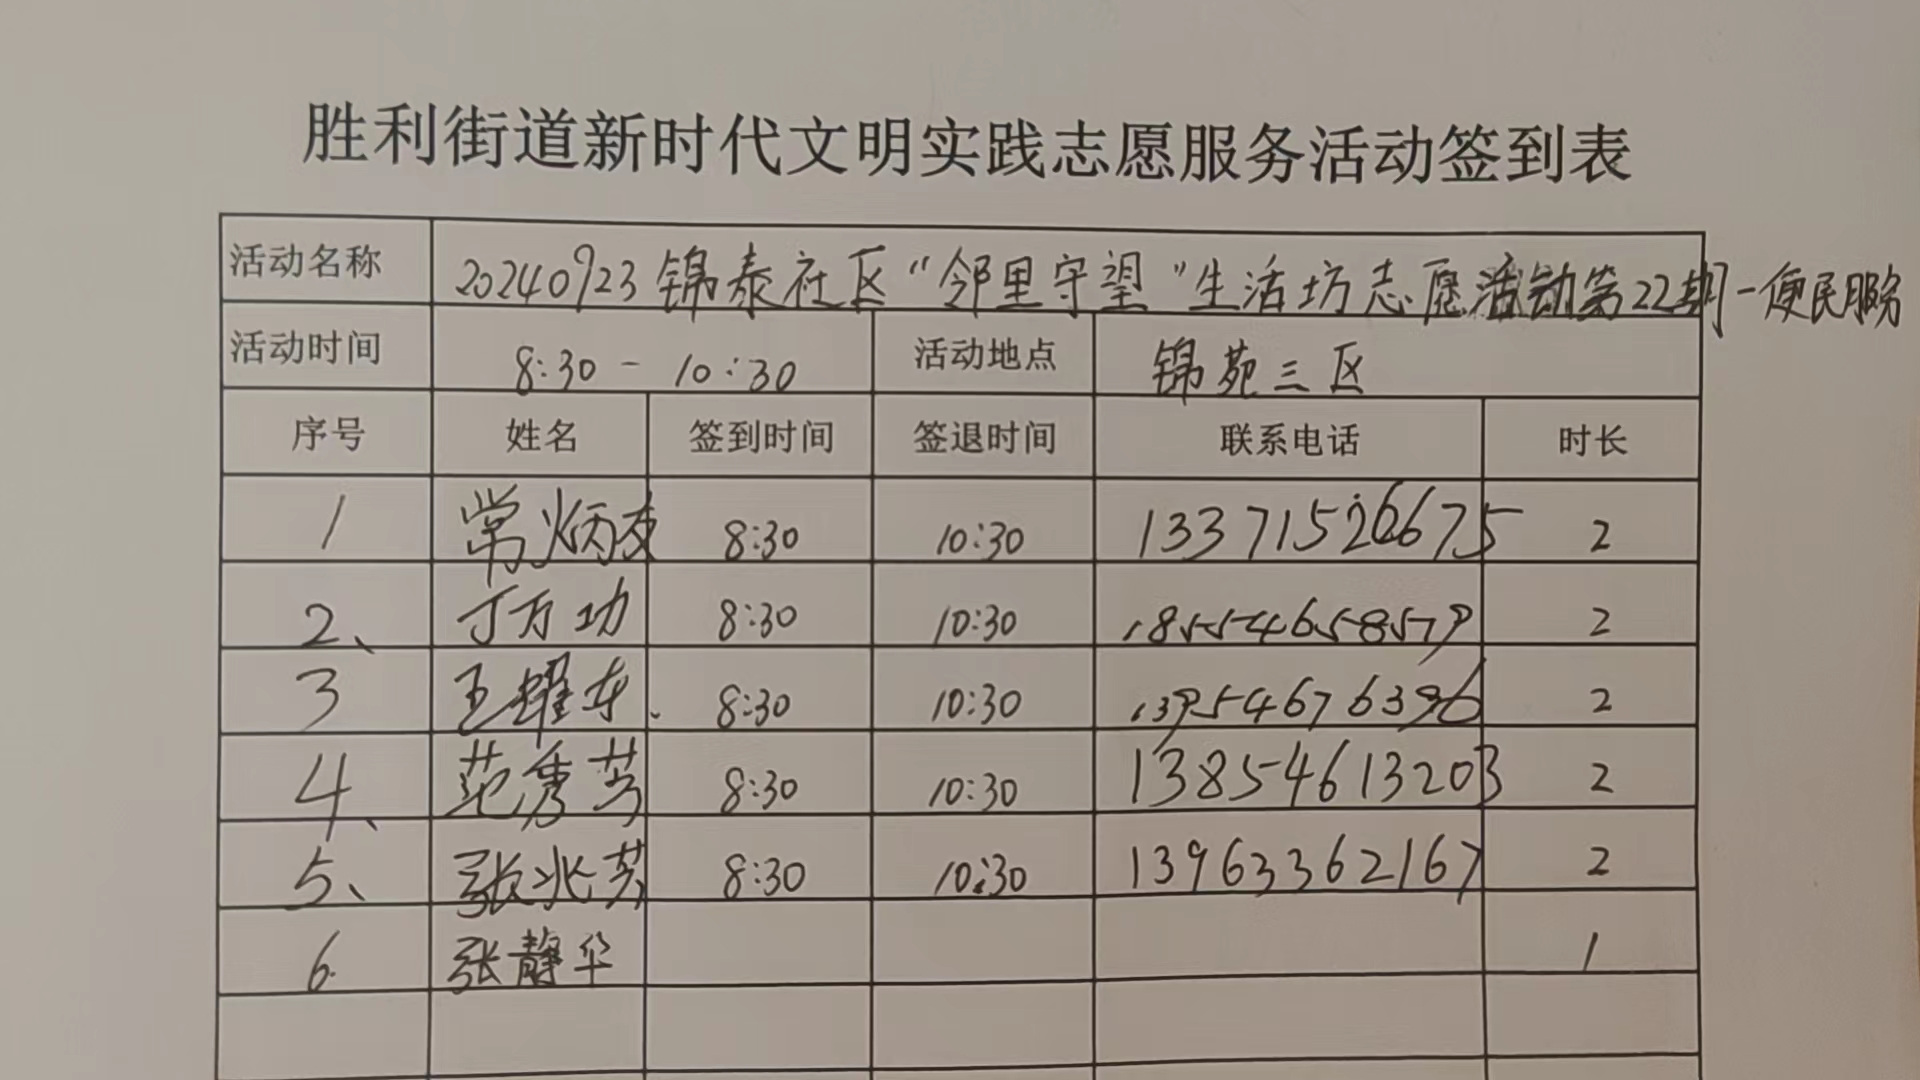 胜利街道新时代文明实践志愿服务活动签到表
活动名称 20240923锦泰社区“邻里守望”生活坊志愿活动第22期-便民服务
活动时间 8:30-10:30 活动地点 锦苑三区
序号 姓名 签到时间 签退时间 联系电话 时长
1 常炳友 8:30 10:30 13371526675 2
2、 丁万功 8:30 10:30 18554658579 2
3 王耀东. 8:30 10:30 13954676396 2
4、 范秀芳 8:30 10:30 13854613203 2
5、 张兆芳 8:30 10:30 13963362167 2
6. 张静华 1